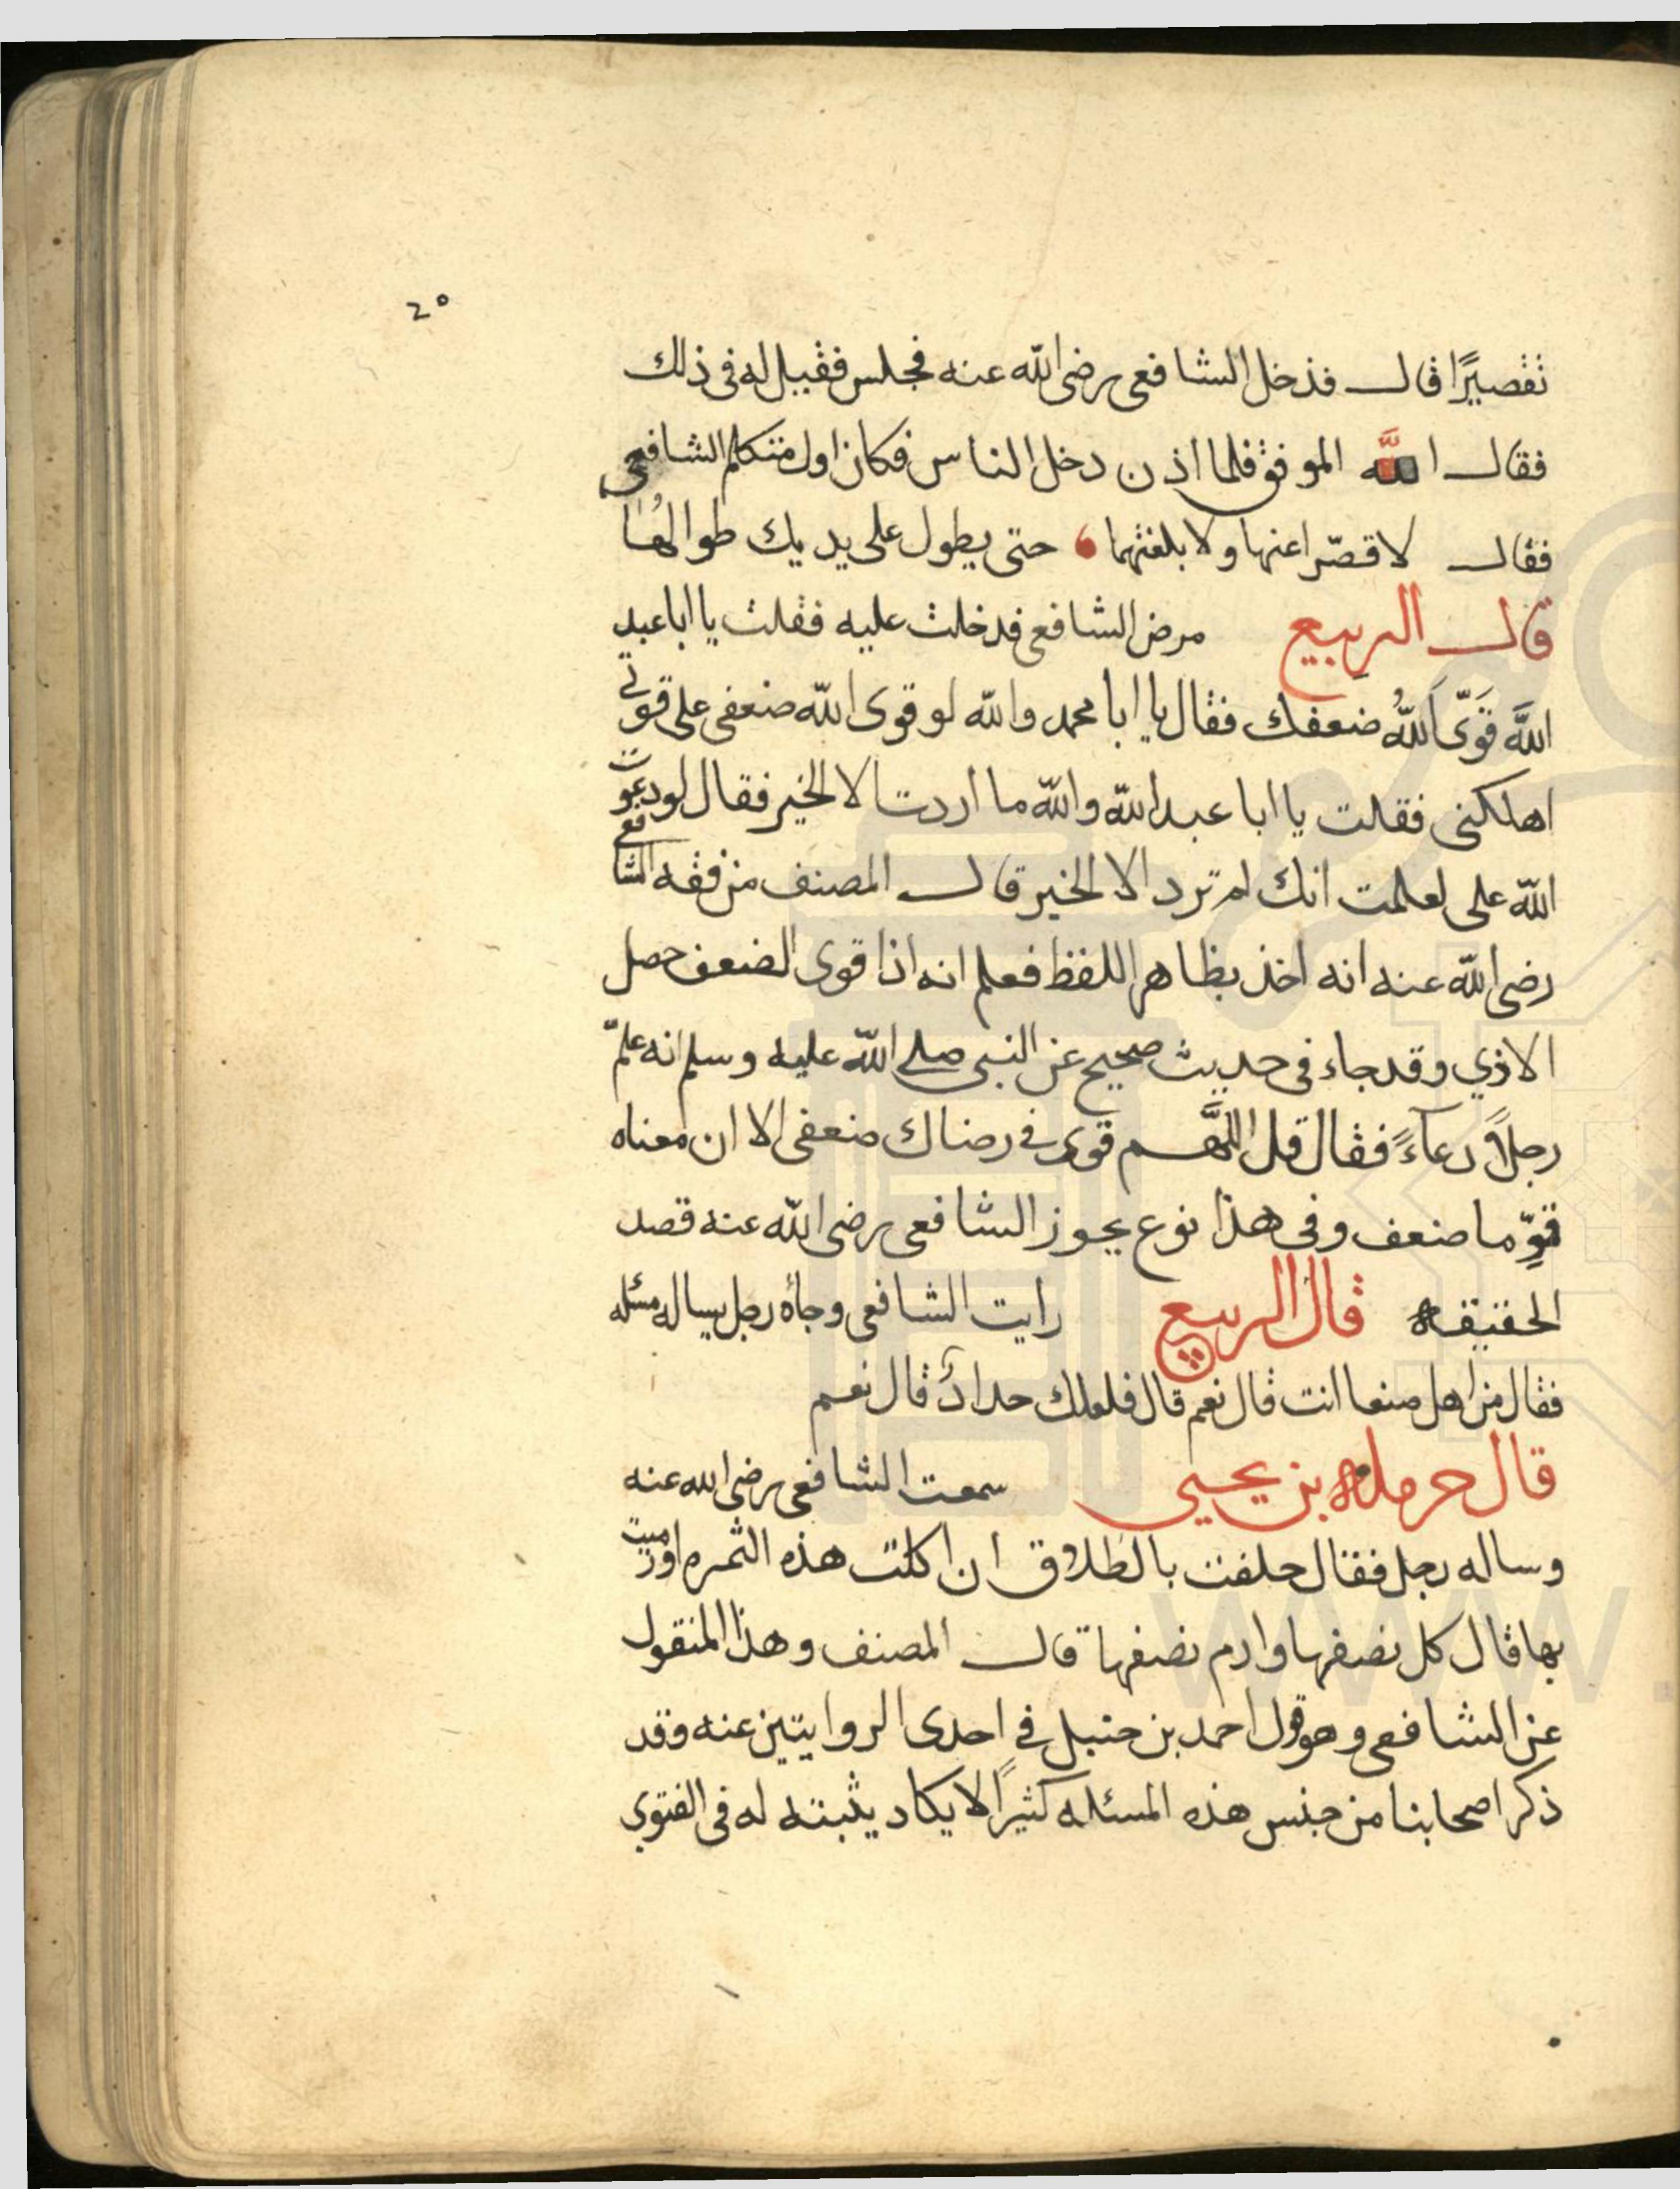 ٢٥
تقصيرًا قال فدخل الشافعى رضى الله عنه فجلس فقيل له فى ذلك
فقال الله الموفق فلما اذن دخل الناس فكان اول متكلم الشافعى
فقال لا قصّرا عنها ولا بلغتهما حتى يطول على يديك طوالهُا
قال الربيع مرض الشافعى فدخلت عليه فقلت يا ابا عبد
اللَّه قَوّى اَللَّهُ ضعفك فقال يا ابا محمد والله لو قوى الله ضعفى على قوتى
اهلكنى فقلت يا ابا عبد الله والله ما اردت الا الخير فقال لو دعوت
الله على لعلمت انك لم ترد الا الخير قال المصنف من فقه الشافعى
رضى الله عنه انه اخذ بظاهر اللفظ فعلم انه اذا قوى الضعف حصل
الاذي وقد جاء فى حديث صحيح عن النبى صلى الله عليه وسلم انه علّم
رجلاً دعآءً فقال قل اللهَّم قوى فى رضاك ضعفى الا ان معناه
قوِّ ما ضعف وفى هذا نوع يجوز الشافعى رضى الله عنه قصد
الحقيقه قال الربيع رايت الشافعى وجاه رجل يساله مسئله
فقال من اهل صنعا انت قال نعم قال فلعلك حدادً قال نعم
قال حرمله بن يحيى سمعت الشافعى رضى الله عنه
وساله رجل فقال حلفت بالطلاق ان اكلت هذه الثمره او رميت
بها قال كل نصفها وارم نصفها قال المصنف وهذا المنقول
عن الشافعى وهو قول احمد بن حنبل فى احدى الروايتين عنه وقد
ذكر اصحابنا من جنس هذه المسئله كثيرًا لا يكاد يثبته له فى الفتوى
www.